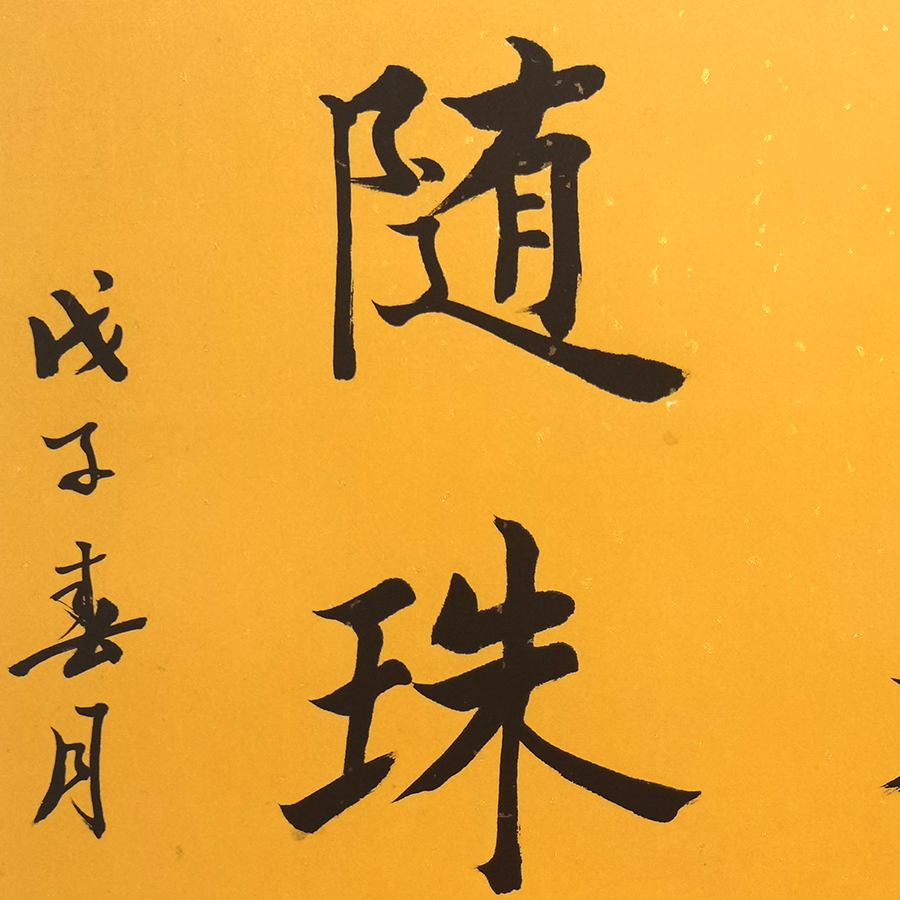 随珠
戊子春月